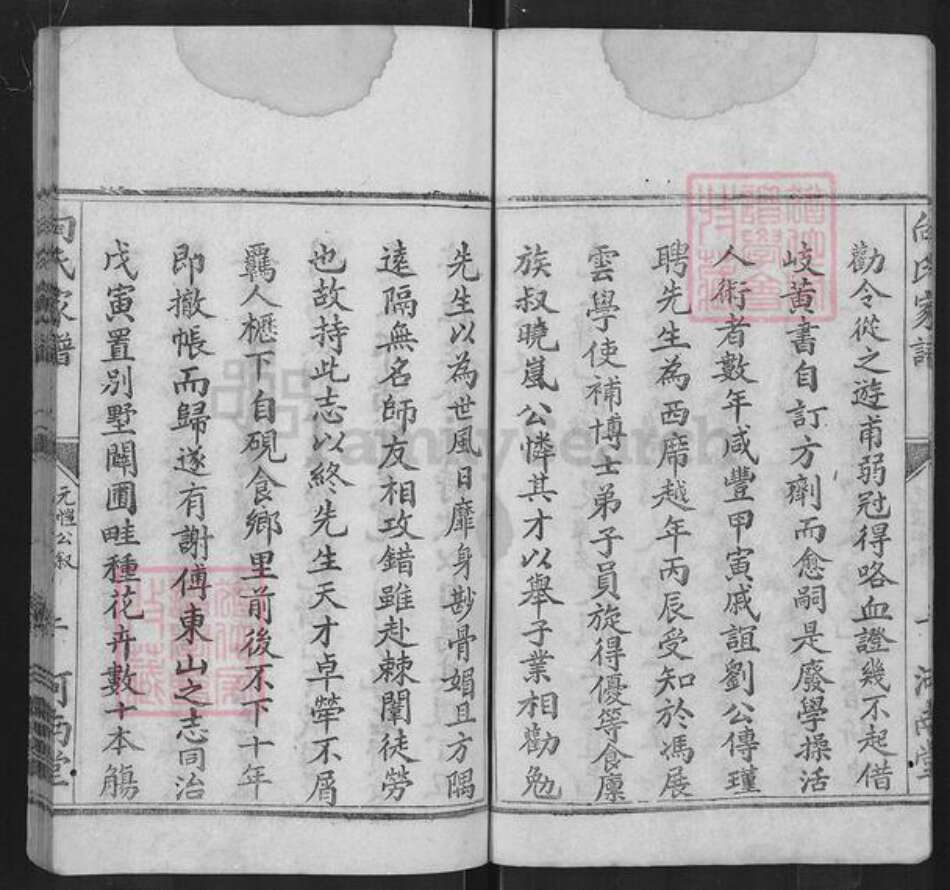 勸令從之遊甫弱冠得咯血證幾不起借
岐黃書自訂方劑而愈嗣是廢學操活
人術者數年咸豐甲寅戚誼劉公傳瑾
聘先生為西席越年丙辰受知於馮展
雲學使補博士弟子員旋得優等食廩
族叔曉嵐公憐其才以舉子業相勸勉
先生以為世風日靡身尠骨媚且方隅
遠隔無名師友相攻錯雖赴棘闈徒勞
也故持此志以終先生天才卓犖不屑
羈人櫪下自硯食鄉里前後不下十年
即撤帳而歸遂有謝傅東山之志同治
戊寅置別墅闢圃畦種花卉數十本觴
氏家譜
元愷公叙
二
河南堂
FamilySearch